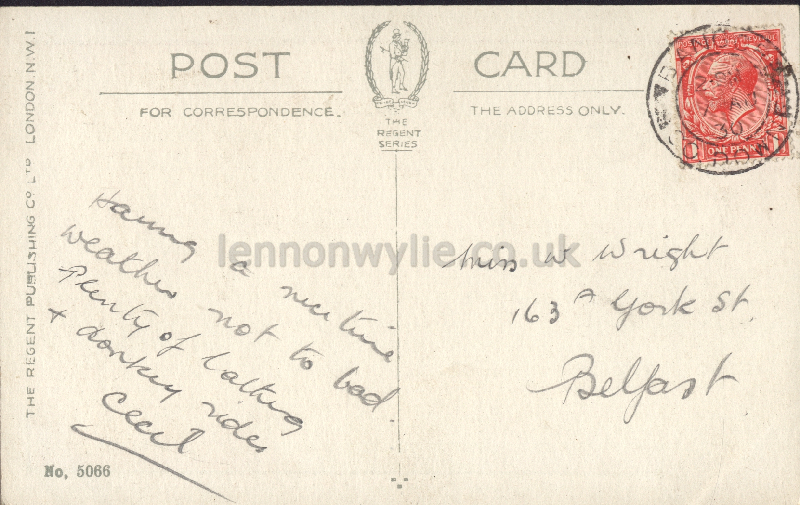 POST CARD
FOR CORRESPONDENCE.
THE ADDRESS ONLY.
THE
REGENT
SERIES
THE REGENT PUBLISHING Co LTD LONDON. N.W.1
ONE PENNY
Having a nice time
weather not to bad
plenty of bathing
+ donkey rides
Cecil
Miss W Wright
163A York St.
Belfast
No, 5066
lennonwylie.co.uk